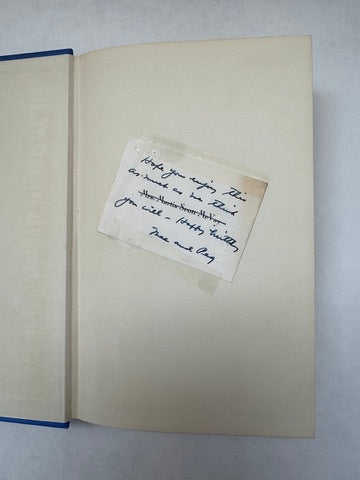 Hope you enjoy this
as much as we think
Mrs. Martin Scott McVoy
you will – Happy Birthday
Mac and Peg